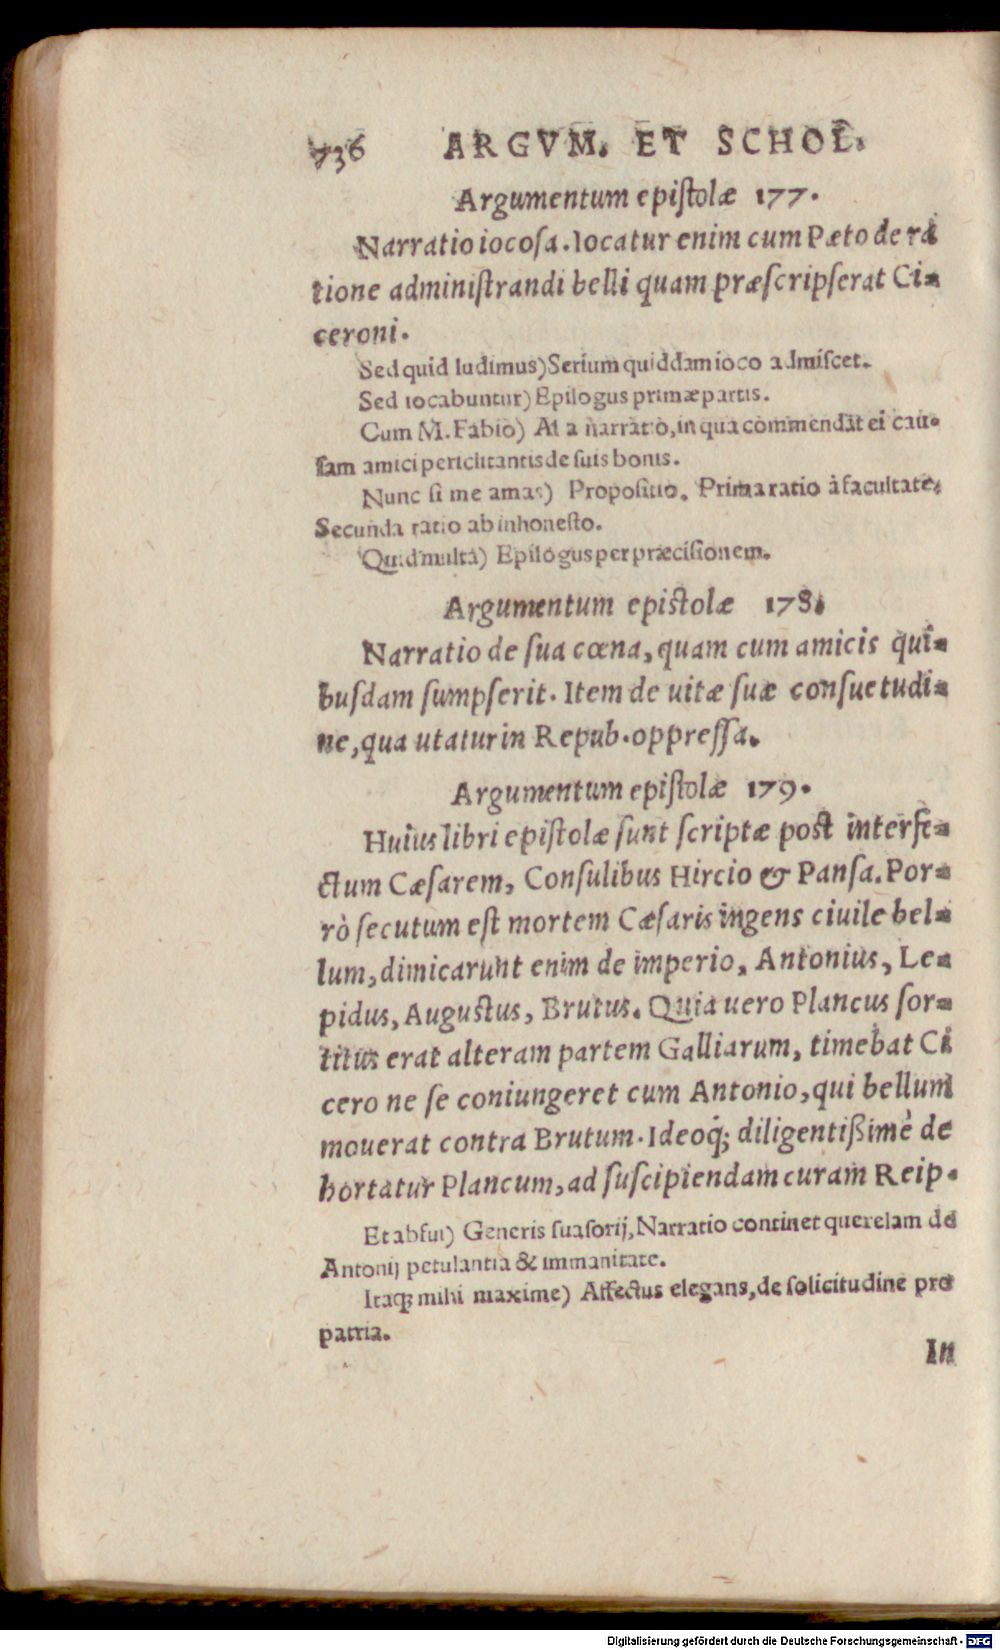 736 ARGVM. ET SCHOL.
Argumentum epistolæ 177.
Narratio iocosa. Iocatur enim cum Pæto de ra
tione administrandi belli quam præscripserat Ci=
ceroni.
Sed quid ludimus) Serium quiddam ioco admiscet.
Sed iocabuntur) Epilogus primæ partis.
Cum M. Fabio) Al a narratio, in qua commendat ei cau=
sam amici periclitantis de suis bonis.
Nunc si me amas) Propositio. Prima ratio à facultate,
Secunda ratio ab inhonesto.
Quid multa) Epilogus per præcisionem.
Argumentum epistolæ 178.
Narratio de sua cœna, quam cum amicis qui=
busdam sumpserit. Item de uitæ suæ consuetudi=
ne, qua utatur in Repub. oppressa.
Argumentum epistolæ 179.
Huius libri epistolæ sunt scriptæ post interfe=
ctum Cæsarem, Consulibus Hircio & Pansa. Por=
rò secutum est mortem Cæsaris ingens ciuile bel=
lum, dimicarunt enim de imperio, Antonius, Le=
pidus, Augustus, Brutus. Quia uero Plancus sor=
titus erat alteram partem Galliarum, timebat Ci
cero ne se coniungeret cum Antonio, qui bellum
mouerat contra Brutum. Ideoq́; diligentißimè de
hortatur Plancum, ad suscipiendam curam Reip.
Et absui) Generis suasorij, Narratio continet querelam de
Antonij petulantia & immanitate.
Itaq; mihi maxime) Affectus elegans, de solicitudine pro
patria.
In
Digitalisierung gefördert durch die Deutsche Forschungsgemeinschaft - DFG